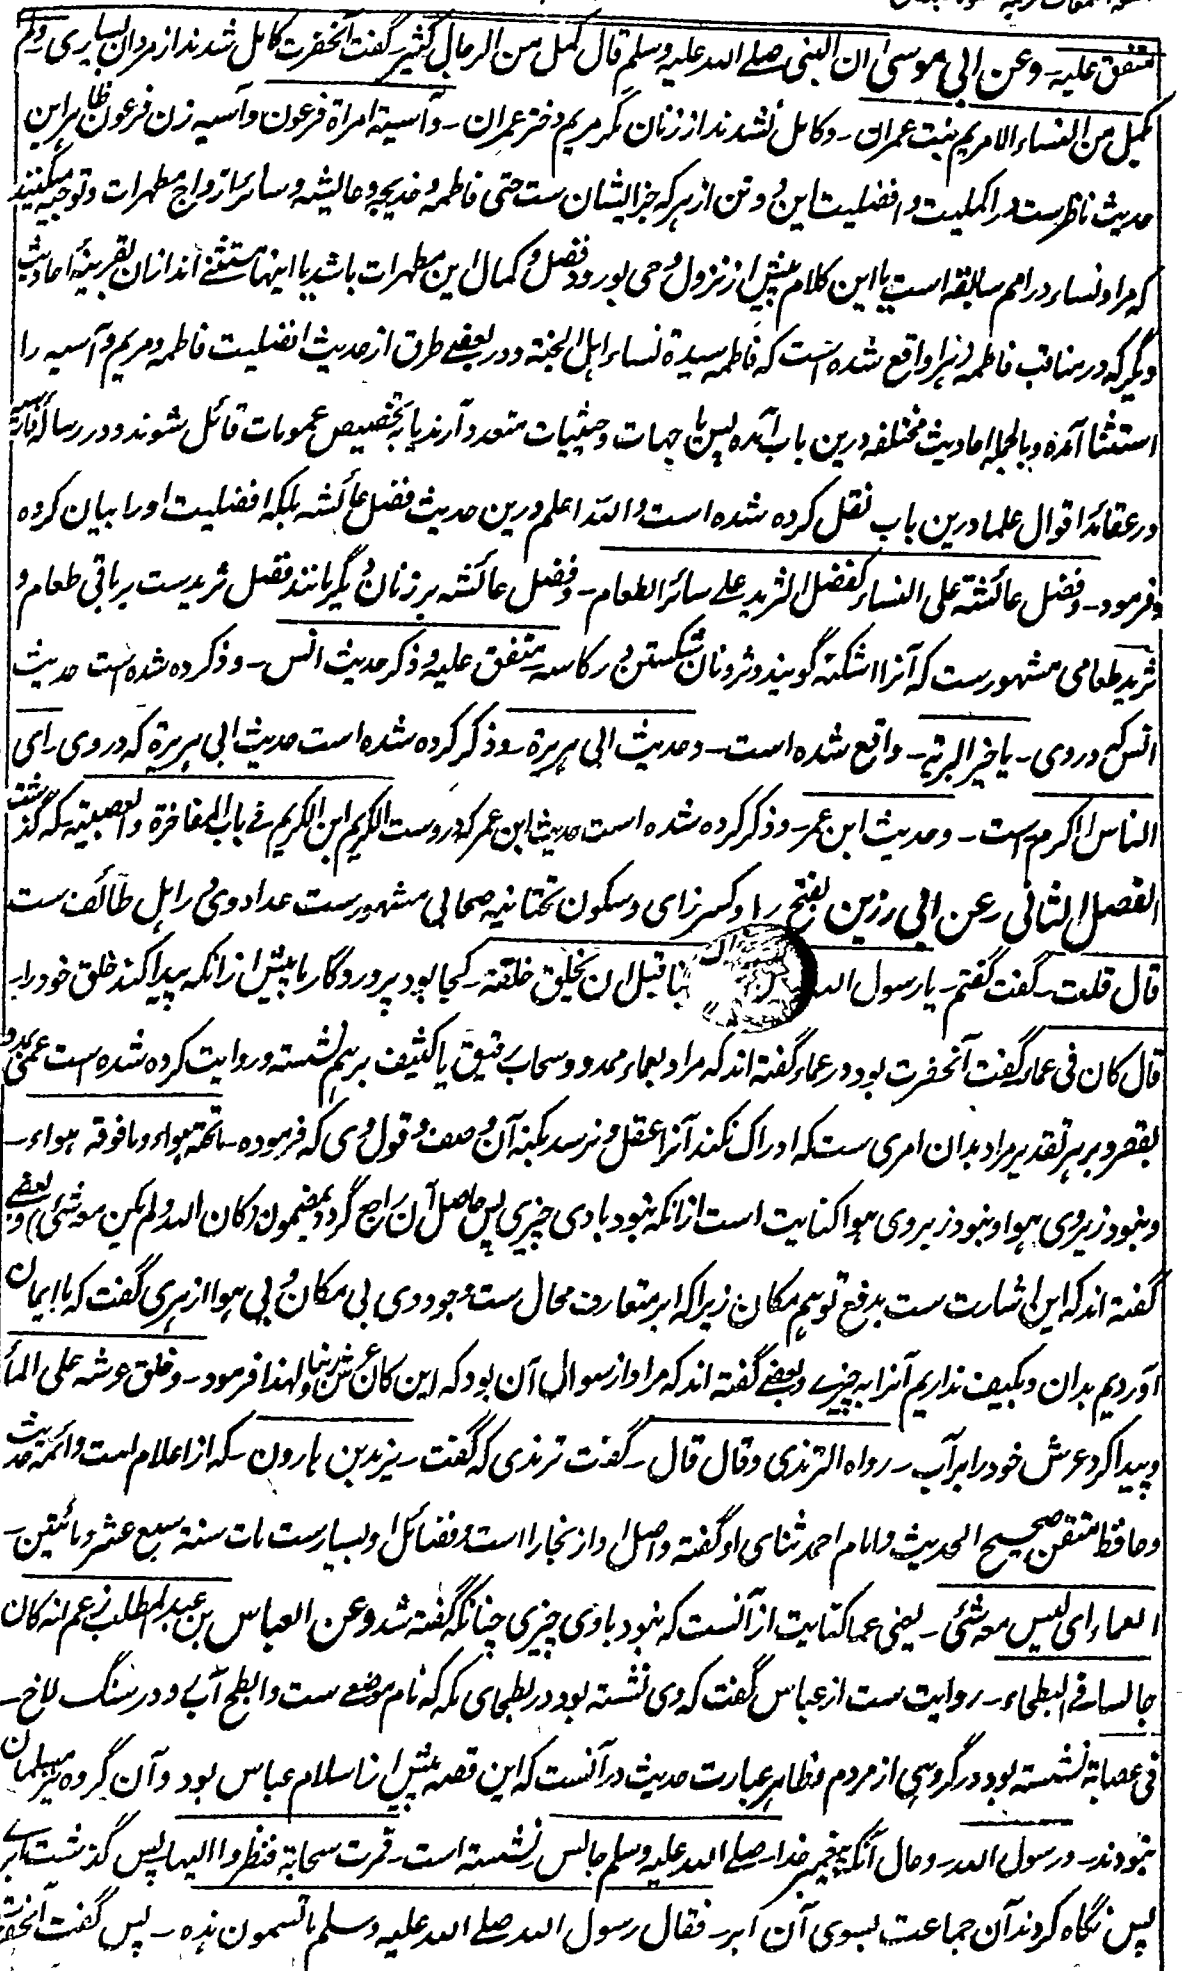 متفق علیه۔ وعن ابی موسیٰ ان النبی صلے الله علیه وسلم قال کمل من الرجال کثیر۔ گفت آنحضرت کامل شدند از مردان بسیاری ولم
یکمل من النساء الا مریم بنت عمران۔ وکامل نشدند از زنان مگر مریم دختر عمران۔ وآسیة امراة فرعون وآسیه زن فرعون ظاهر این
حدیث ناظرست در اکملیت و افضلیت این دو تن از هر که جز ایشان ست حتی فاطمه و خدیجه و عایشه و سائر ازواج مطهرات وتوجیه میکنند
که مراد نساء در امم سابقه است یا این کلام پیش از نزول وحی بورود فضل و کمال این مطهرات باشد یا اینها مستثنے اند ازان بقرینهٔ احادیث
دیگر که در مناقب فاطمه زهرا واقع شده است که فاطمه سیدة نساء اهل الجنة و در بعضے طرق از حدیث افضلیت فاطمه و مریم و آسیه را
استثنا آمده وبالجمله احادیث مختلفه درین باب آمده پس یا جهات وحیثیات متعدد آرند یا به تخصیص عمومات قائل شوند ودر رسالهٔ فارسیه
در عقائد اقوال علما درین باب نقل کرده شده است والله اعلم درین حدیث فضل عائشه بلکه افضلیت او را بیان کرده
وفرمود۔ وفضل عائشة علی النساء کفضل الثرید علے سائر الطعام۔ وفضل عائشه بر زنان دیگر مانند فضل ثریدست بر باقی طعام و
ثرید طعامی مشهورست که آنرا اشکنه گویند وثرد نان شکستن در کاسه۔ متفق علیه وذکر حدیث انس۔ وذکر کرده شده است حدیث
انس که در وی۔ یا خیر البریة۔ واقع شده است۔ وحدیث ابی هریرة۔ وذکر کرده شده است حدیث ابی هریرة که در وی۔ ای
الناس اکرم۔ است۔ وحدیث ابن عمر۔ وذکر کرده شده است حدیث ابن عمر که در وست الکریم ابن الکریم فے باب المفاخرة والعصبیة که گذشت
الفصل الثانی۔ عن ابی رزین بفتح را وکسر زای وسکون تحتانیه صحابی مشهورست عداد وی در اهل طائف ست
قال قلت۔ گفت گفتم۔ یا رسول الله قبل ان یخلق خلقه۔ کجا بود پروردگار ما پیش از آنکه پیدا کند خلق خود را۔
قال کان فی عماء۔ گفت آنحضرت بود در عماء گفته اند که مراد بعماء ممدود سحاب رقیق یا کثیف بر هم نشسته وروایت کرده شده است عمی
بقصر وبر هر تقدیر مراد بدان امری ست که ادراک نکند آنرا عقل ونرسد بکنه آن وصف وقول وی که فرموده۔ ما تحته هواء وما فوقه هواء۔
ونبود زیر وی هوا ونبود زبر وی هوا کنایت است از آنکه نبود با وی چیزی پس حاصل آن راجع گردد بمضمون (کان الله ولم یکن معه شئ) وبعضے
گفته اند که این اشارت ست بدفع توهم مکان زیرا که ابر متعارف محال ست وجود وی بی مکان و بی هوا ازهری گفت که ما ایمان
آوردیم بدان وبکیف نداریم آنرا به چیزے وبعضے گفته اند که مراد از سوال آن بود که این کان عرش ربنا ولهذا فرمود۔ وخلق عرشه علی الماء
وپیدا کرد عرش خود را بر آب۔ رواه الترمذی وقال قال۔ گفت ترمذی که گفت۔ یزید بن هارون۔ که از اعلام است وائمهٔ حدیث
وحافظ متقن صحیح الحدیث وامام احمد ثنای او گفته واصل او از بخارا است وفضائل او بسیارست مات سنة سبع عشر ومائتین۔
العماء ای لیس معه شئی۔ یعنی عما کنایت از آنست که نبود با وی چیزی چنانکه گفته شد وعن العباس بن عبد المطلب زعم انه کان
جالسا فی البطحاء۔ روایت ست از عباس گفت که وی نشسته بود در بطحای مکه که نام موضعے ست وابطح آب رو در سنگ لاخ۔
فی عصابة نشسته بود در گروهی از مردم وظاهر عبارت حدیث در آنست که این قصه پیش از اسلام عباس بود وآن گروه نیز مسلمان
نبودند۔ ورسول الله۔ وحال آنکه پیغمبر خدا۔ صلے الله علیه وسلم جالس۔ نشسته است۔ فمرت سحابة فنظروا الیها۔ پس گذشت ابرے
پس نگاه کردند آن جماعت بسوی آن ابر۔ فقال رسول الله صلے الله علیه وسلم ما تسمون هذه۔ پس گفت آنحضرت